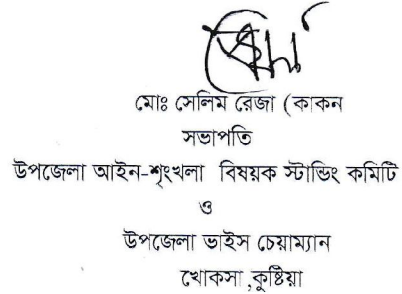 মোঃ সেলিম রেজা (কাকন
সভাপতি
উপজেলা আইন-শৃংখলা বিষয়ক স্টান্ডিং কমিটি
ও
উপজেলা ভাইস চেয়াম্যান
খোকসা ,কুষ্টিয়া